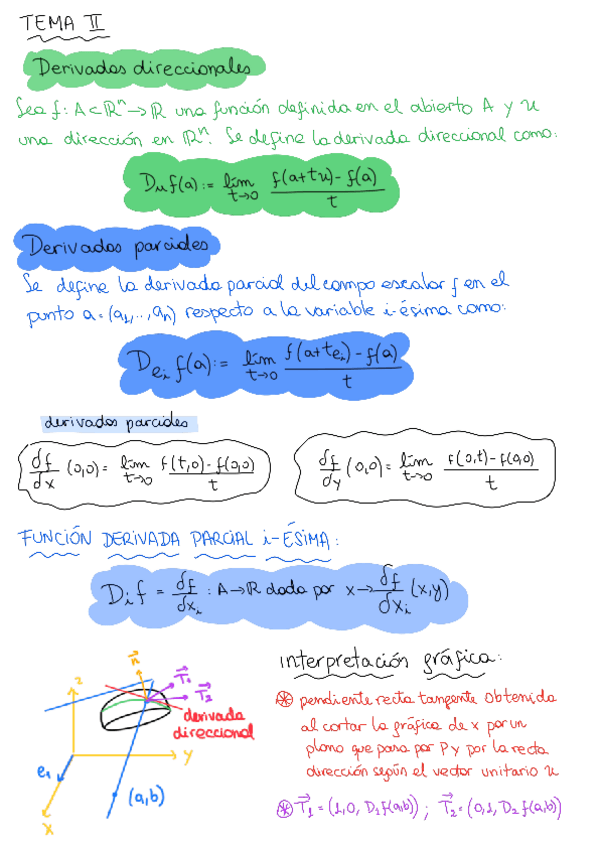 TEMA II
Derivadas direccionales
Sea f: A⊂ℝⁿ→ℝ una función definida en el abierto A y u
una dirección en ℝⁿ. Se define la derivada direccional como:
Dᵤf(a):= lím t→0 f(a+tu)-f(a) / t
Derivadas parciales
Se define la derivada parcial del campo escalar f en el
punto a=(a₁,...,aₙ) respecto a la variable i-ésima como:
D_{eᵢ} f(a):= lím t→0 f(a+teᵢ)-f(a) / t
derivadas parciales
∂f/∂x (0,0)= lím t→0 f(t,0)-f(0,0) / t
∂f/∂y (0,0)= lím t→0 f(0,t)-f(0,0) / t
FUNCIÓN DERIVADA PARCIAL i-ÉSIMA:
Dᵢf = ∂f/∂xᵢ : A→ℝ dada por x→ ∂f/∂xᵢ (x,y)
z
n
T₁
T₂
derivada
direccional
y
e₁
(a,b)
x
interpretación gráfica:
⊛ pendiente recta tangente obtenida
al cortar la gráfica de x por un
plano que pasa por P y por la recta
dirección según el vector unitario u
⊛ T₁=(1,0, D₁f(a,b)) ; T₂=(0,1, D₂f(a,b))